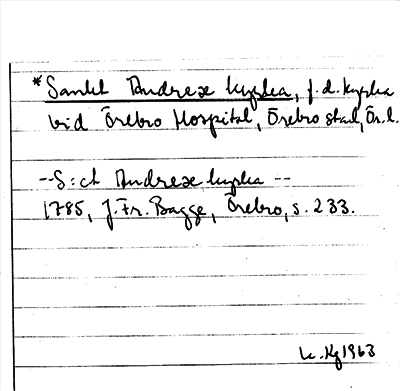 *Sankt Andreæ kyrka, f.d. kyrka
vid Örebro Hospital, Örebro stad, Ör.l.
--S:ct Andreæ kyrka --
1785, J.Fr. Bagge, Örebro, s. 233.
Kg 1963